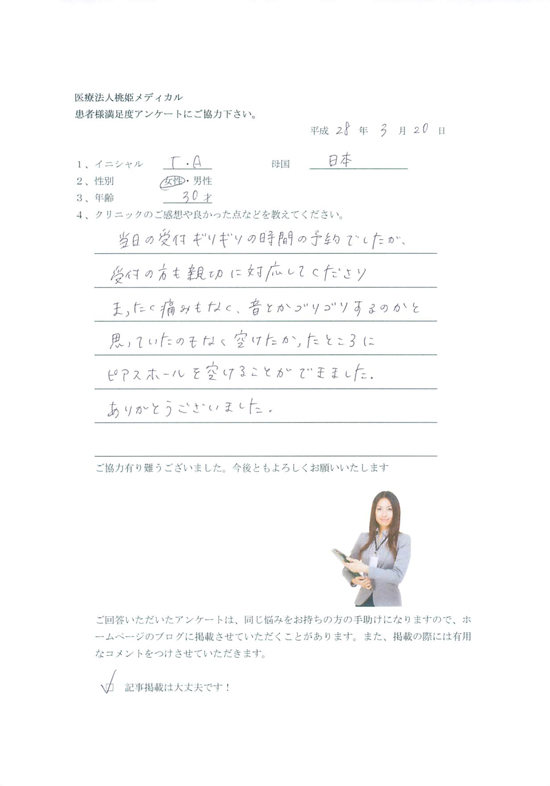 医療法人桃姫メディカル
患者様満足度アンケートにご協力下さい。
平成 28 年 3 月 20 日
1、イニシャル T.A 母国 日本
2、性別 女性・男性
3、年齢 30才
4、クリニックのご感想や良かった点などを教えてください。
当日の受付ギリギリの時間の予約でしたが、
受付の方も親切に対応してくださり
まったく痛みもなく、音とかゴリゴリするのかと
思っていたのもなく空けたかったところに
ピアスホールを空けることができました。
ありがとうございました。
ご協力有り難うございました。今後ともよろしくお願いいたします
ご回答いただいたアンケートは、同じ悩みをお持ちの方の手助けになりますので、ホ
ームページのブログに掲載させていただくことがあります。また、掲載の際には有用
なコメントをつけさせていただきます。
記事掲載は大丈夫です！